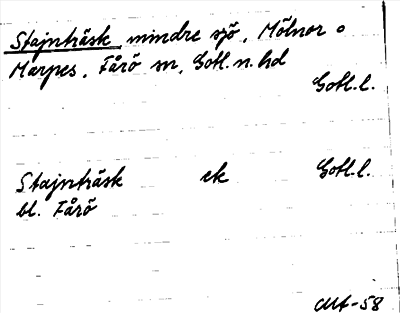 Stajnträsk mindre sjö, Mölnor o
Marpes, Fårö sn, Gotl. n. hd
Gotl. l.
Stajnträsk ek Gotl. l.
bl. Fårö
-58